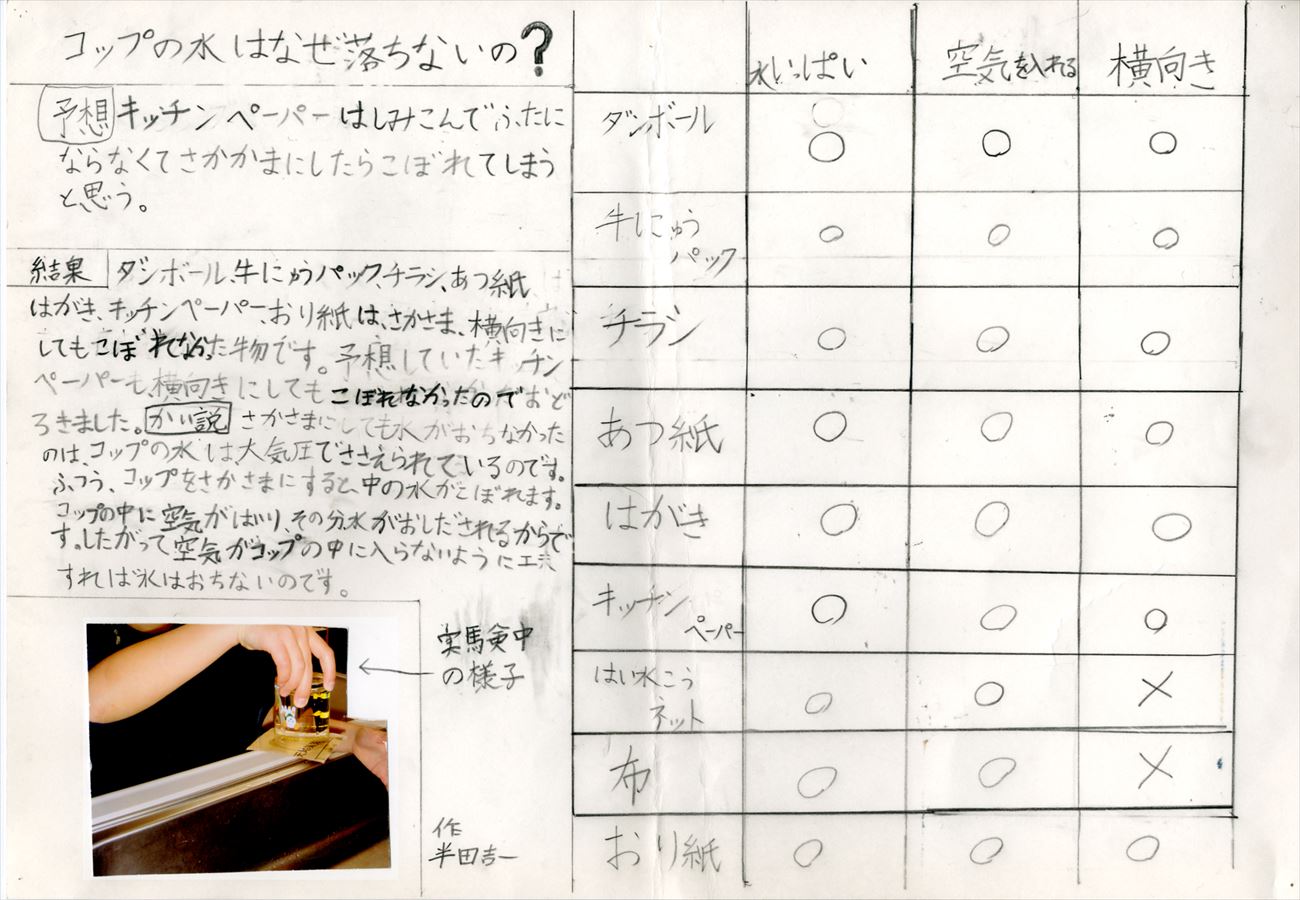 コップの水はなぜ落ちないの?
予想 キッチンペーパーはしみこんでふたに
ならなくてさかかまにしたらこぼれてしまう
と思う。
結果 ダンボール、牛にゅうパック、チラシ、あつ紙、
はがき、キッチンペーパー、おり紙は、さかさま、横向きに
してもこぼれてなかった物です。予想していたキッチン
ペーパーも、横向きにしてもこぼれなかったのでおど
ろきました。かい説 さかさまにしても水がおちなかった
のは、コップの水は、大気圧でささえられているのです。
ふつう、コップをさかさまにすると、中の水がこぼれます。
コップの中に空気がはいり、その分水がおしだされるからで
す。したがって空気がコップの中に入らないように工夫
すれば水はおちないのです。
実験中
の様子
作
半田吉一
水いっぱい 空気を入れる 横向き
ダンボール ○ ○ ○
牛にゅう
パック ○ ○ ○
チラシ ○ ○ ○
あつ紙 ○ ○ ○
はがき ○ ○ ○
キッチン
ペーパー ○ ○ ○
はい水こう
ネット ○ ○ ×
布 ○ ○ ×
おり紙 ○ ○ ○